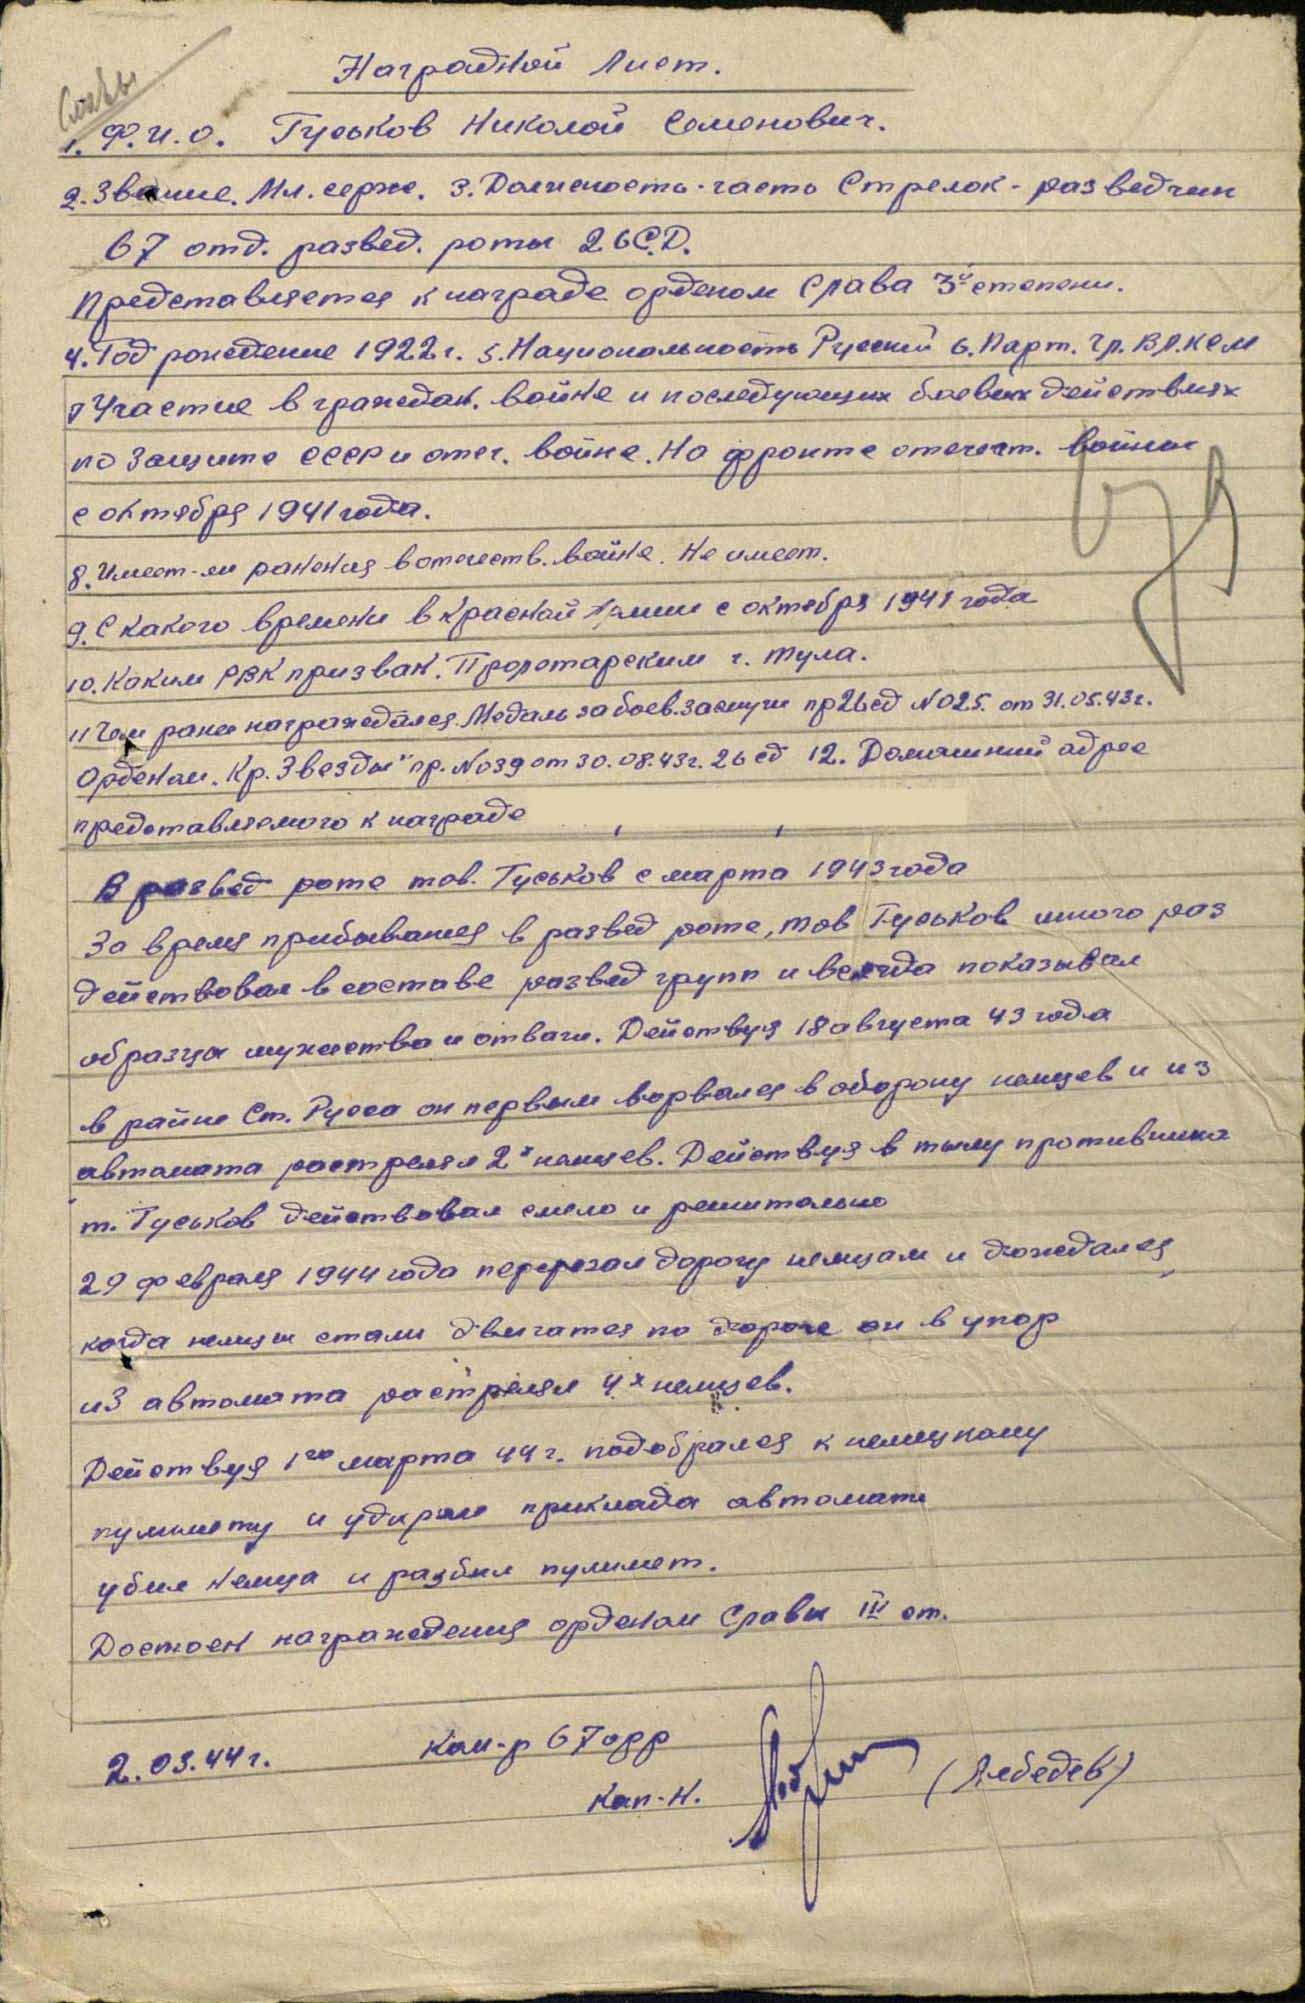 Славы
Наградной Лист.
1. Ф.И.О. Гуськов Николой Семенович.
2. Звание. Мл. серж. 3. Должность-часть Стрелок-разведчик
67 отд. развед. роты 26 С.Д.
Представляется к награде орденом Слава 3й степени.
4. Год рождение 1922 г. 5. Национольность Русский 6. Парт. Чл. ВЛКСМ
7 Участие в граждан. войне и последующих боевых действиях
по защите СССР и отеч. войне. На фронте отечест. войны
с октября 1941 года.
8. Имеет-ли ранения в отечеств. войне. Не имеет.
9. С какого времени в Красной Армии с октября 1941 года
10. Каким РВК призван. Пролетарским г. Тула.
11 Чем ранее награждался. Медаль за боев. заслуги пр 26 сд № 025. от 31.05.43 г.
Орденом. Кр. Звезды" пр. № 039 от 30.08.43 г. 26 сд 12. Домашний адрес
представляемого к награде
В развед роте тов. Гуськов с марта 1943 года
За время прибывания в развед роте, тов Гуськов много раз
действовал в составе развед групп и всегда показывал
образцы мужества и отваги. Действуя 18 августа 43 года
в райне Ст. Русса он первым ворвался в оборону немцев и из
автомата растрелял 2х немцев. Действуя в тылу противника
т. Гуськов действовал смело и решительно
29 февраля 1944 года перерезал дорогу немцам и дождался,
когда немцы стали двигатся по дороге он в упор
из автомата растрелял 4х немцев.
Действуя 1го марта 44 г. подобрался к немецкому
пулимету и ударом приклада автомата
убил немца и разбил пулимет.
Достоен награждения орденом Славы III ст.
2.03.44 г. Ком-р 67 орр
Кап-н. (Лебедев)